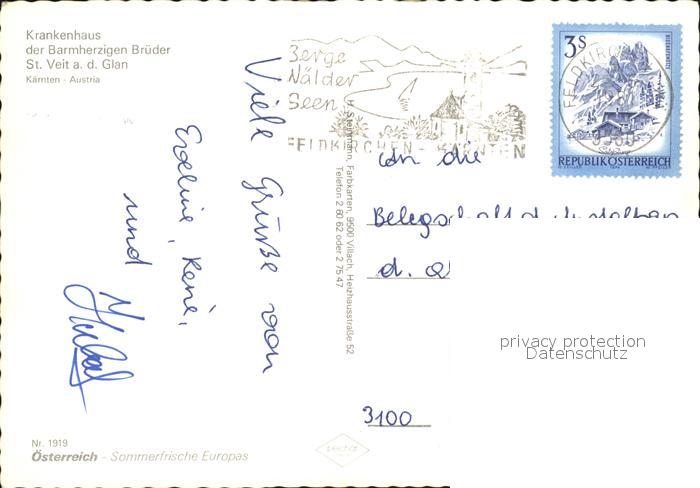 Krankenhaus
der Barmherzigen Brüder
St. Veit a. d. Glan
Kärnten - Austria
Berge
Wälder
Seen
FELDKIRCHEN - KÄRNTEN
3S
FELDKIRCHEN
REPUBLIK ÖSTERREICH
Viele Grüße von
Eveline, René,
und
H. Steinmann, Farbkarten, 9500 Villach, Heizhausstraße 52
Telefon 2 60 62 oder 2 75 47
An die
d.
3100
privacy protection
Datenschutz
Nr. 1919
Österreich - Sommerfrische Europas